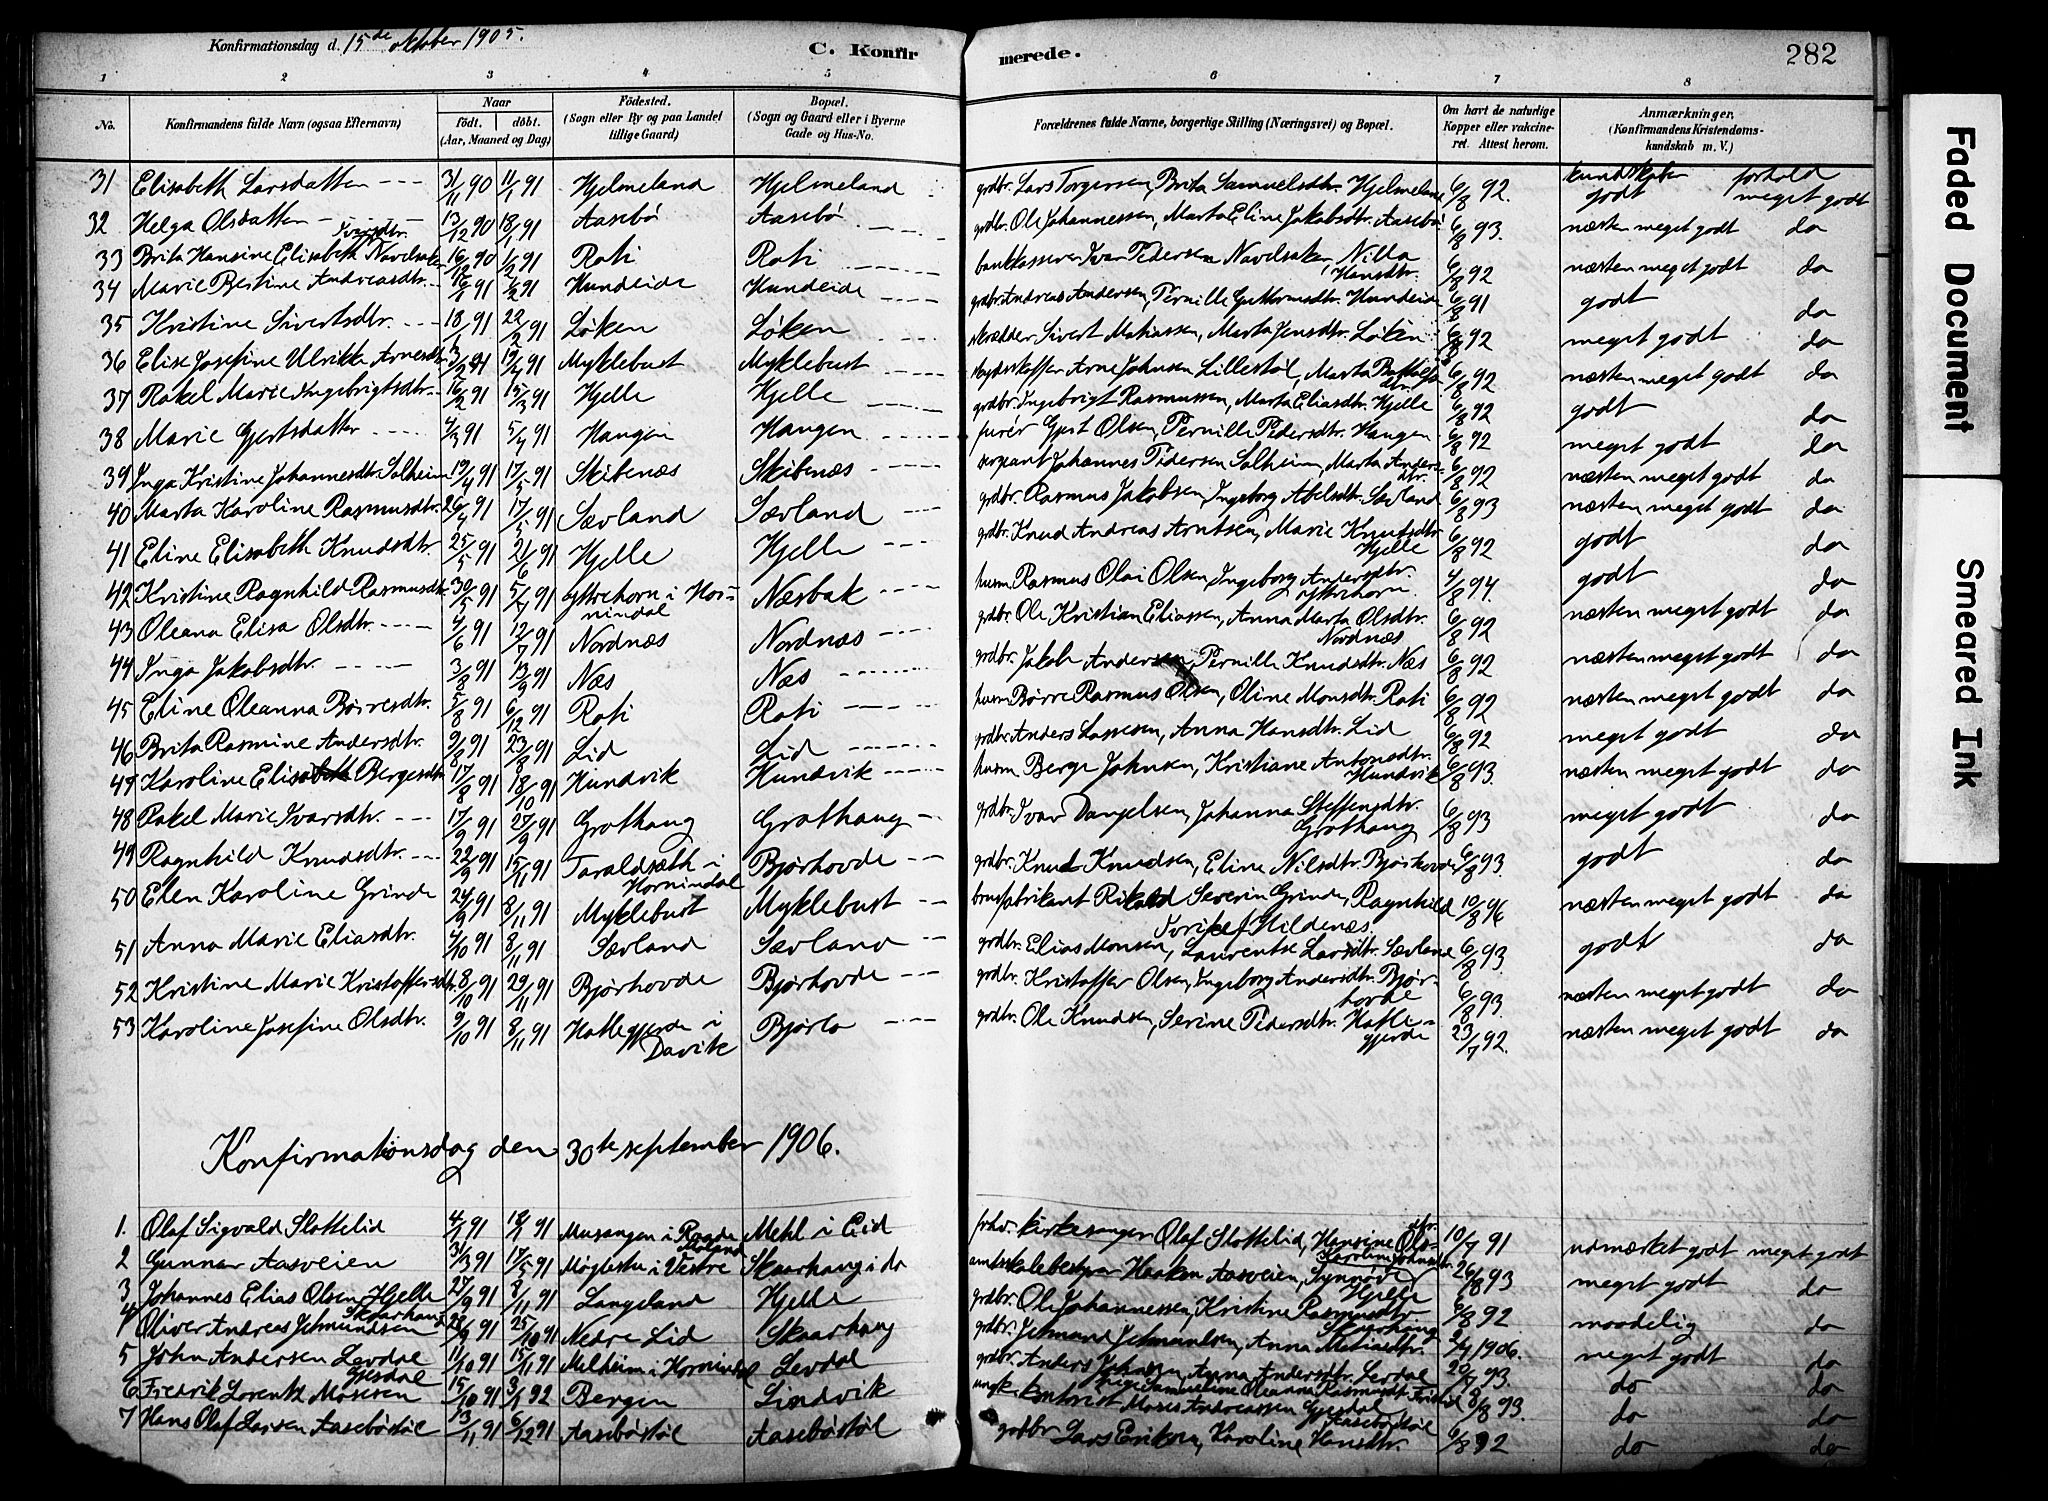 Konfirmationsdag d. 15de oktober 1905.
C. Konfirmerede.
282
1 2 3 4 5 6 7 8
No.
Konfirmandens fulde Navn (ogsaa Efternavn)
Naar
født. døbt.
(Aar, Maaned og Dag)
Fødested.
(Sogn eller By og paa Landet
tillige Gaard)
Bopæl.
(Sogn og Gaard eller i Byerne
Gade og Hus-No.
Forældrenes fulde Navne, borgerlige Stilling (Næringsvei) og Bopæl.
Om havt de naturlige
Kopper eller vakcine-
ret. Attest herom.
Anmærkninger.
(Konfirmandens Kristendoms-
kundskab m. V.)
kundskab forhold
31 Elisabeth Larsdatter 31/11 90 11/1 91 Hjelmeland Hjelmeland grdbr. Lars Torgersen, Brita Samuelsdtr. Hjelmeland 6/8 92. godt meget godt
32 Helga Olsdatter 13/12 90 18/1 91 Aasebø Aasebø grdbr. Ole Johannessen, Marta Eline Jakobsdtr. Aasebø 6/8 93. næsten meget godt do
33 Brita Hansine Elisabeth Ivarsdtr. Navelsaker 16/12 90 1/2 91 Roti Roti bankkasserer Ivar Pedersen Navelsaker, Nilla Hansdtr. 6/8 92 næsten meget godt do
34 Marie Bertine Andreasdtr. 16/1 91 1/2 91 Hundeide Hundeide grdbr. Andreas Andersen, Pernille Guttormsdtr. Hundeide 6/8 91 godt do
35 Kristine Sivertsdtr. 18/1 91 22/2 91 Løken Løken skrædder Sivert Matiassen, Marta Jensdtr. Løken 6/8 92 meget godt do
36 Elise Josefine Ulrikke Arnesdtr. 3/2 91 19/4 91 Myklebust Myklebust skydsskaffer Arne Johnsen Lillestøl, Marta 6/8 92 næsten meget godt do
37 Rakel Marie Ingebrigtsdtr. 16/2 91 15/3 91 Hjelle Hjelle grdbr. Ingebrigt Rasmussen, Marta Eliasdtr. Hjelle 6/8 92 godt do
38 Marie Gjertsdatter 4/3 91 5/4 91 Haugen Haugen furér Gjert Olsen, Pernille Pedersdtr. Haugen 6/8 92 meget godt do
39 Inga Kristine Johannesdtr. Solheim 19/4 91 17/5 91 Skibenæs Skibenæs sergeant Johannes Pedersen Solheim, Marta Andersdtr. 6/8 92 næsten meget godt do
40 Marta Karoline Rasmusdtr. 26/4 91 17/5 91 Sævland Sævland grdbr. Rasmus Jakobsen, Ingeborg Abelsdtr. Sævland 6/8 93 næsten meget godt do
41 Eline Elisabeth Knudsdtr. 25/5 91 21/6 91 Hjelle Hjelle grdbr. Knud Andreas Arntsen, Marie Knutsdtr. Hjelle 6/8 92 godt do
42 Kristine Ragnhild Rasmusdtr. 30/5 91 5/7 91 yttrehorn i Hornindal Næsbak husm. Rasmus Olai Olsen, Ingeborg Andersdtr. yttrehorn. 4/8 94. godt do
43 Oleana Elisa Olsdtr. 4/6 91 12/7 91 Nordnæs Nordnæs grdbr. Ole Kristian Eliassen, Anna Marta Olsdtr. Nordnæs 6/8 92 næsten meget godt do
44 Inga Jakobsdtr. 3/8 91 13/9 91 Næs Næs grdbr. Jakob Andersen, Pernille Knudsdtr. Næs 6/8 92 næsten meget godt do
45 Eline Oleanna Børresdtr. 5/8 91 6/12 91 Roti Roti husm. Børre Rasmus Olsen, Oline Monsdtr. Roti 6/8 92 næsten meget godt do
46 Brita Rasmine Andersdtr. 9/8 91 23/8 91 Lid Lid grdbr. Anders Lassesen, Anna Hansdtr. Lid 6/8 92 meget godt do
47 Karoline Elisabeth Bergesdtr. 17/8 91 18/10 91 Hundvik Hundvik husm. Berge Johnsen, Kristiane Antonsdtr. Hundvik 6/8 93. næsten meget godt do
48 Rakel Marie Ivarsdtr. 17/9 91 27/9 91 Grothaug Grothaug grdbr. Ivar Danjelsen, Johanna Steffensdtr. Grothaug 6/8 93 meget godt do
49 Ragnhild Knudsdtr. 22/9 91 15/11 91 Taraldsæth i Hornindal Bjørhovde grdbr. Knud Knudsen, Eline Nilsdtr. Bjørhovde 6/8 93. godt do
50 Elen Karoline Grinde 24/9 91 8/11 91 Myklebust Myklebust brusfabrikant Rikald Severin Grinde, Ragnhild Hildenæs. 10/8 96 næsten meget godt do
51 Anna Marie Eliasdtr. 4/10 91 8/11 91 Sævland Sævland grdbr. Elias Monsen, Laurentse Larsdtr. Sævland 6/8 93. godt do
52 Kristine Marie Kristoffersdtr. 8/10 91 29/11 91 Bjørhovde Bjørhovde grdbr. Kristoffer Olsen, Ingeborg Andersdtr. Bjørhovde 6/8 93. næsten meget godt do
53 Karoline Josefine Olsdtr. 9/10 91 8/11 91 Hatlegjerde i Davik Bjørlo grdbr. Ole Knudsen, Serine Pedersdtr. Hatlegjerde 23/7 92. næsten meget godt do
Konfirmationsdag den 30te september 1906.
1. Olaf Sigvald Slottelid 4/1 91 18/1 91 Mehl i Eid fhv. kirkesanger Olaf Slottelid, Hansine Olsdtr. 10/7 91 udmærket godt meget godt
2 Gunnar Aasveien 31/3 91 17/5 91 Skaarhaug i do amtsskolebestyrer Haaken Aasveien, Synnøve 26/8 93 meget godt do
3 Johannes Elias Olsen Hjelle 27/9 91 8/11 91 Langeland Hjelle grdbr. Ole Johannessen, Kristine Rasmusdtr. Hjelle 6/8 92 maadelig do
4 Oliver Andreas Jetmundsen Skaarhaug 28/9 91 25/10 91 Nedre Lid Skaarhaug grdbr. Jetmund Jetmundsen, Anna Matiasdtr. Skaarhaug 3/9 1906. meget godt do
5 John Andersen Levdal 11/10 91 15/11 91 Melheim i Hornindal Levdal grdbr. Anders Johnsen, Anna Andersdtr. Levdal 20/7 93. do do
6 Fredrik Lorentz Mosesen Gjesdal 15/10 91 3/1 92 Bergen Lindvik ungk. kontorist Moses Andreassen Gjesdal, Oleanna Rasmusdtr. 8/8 93. do do
7 Hans Olaf Larsen Aasebøstøl 13/11 91 6/12 91 Aasebøstøl Aasebøstøl grdbr. Lars Eriksen, Karoline Hansdtr. Aasebøstøl 6/8 92 do do
Faded Document
Smeared Ink